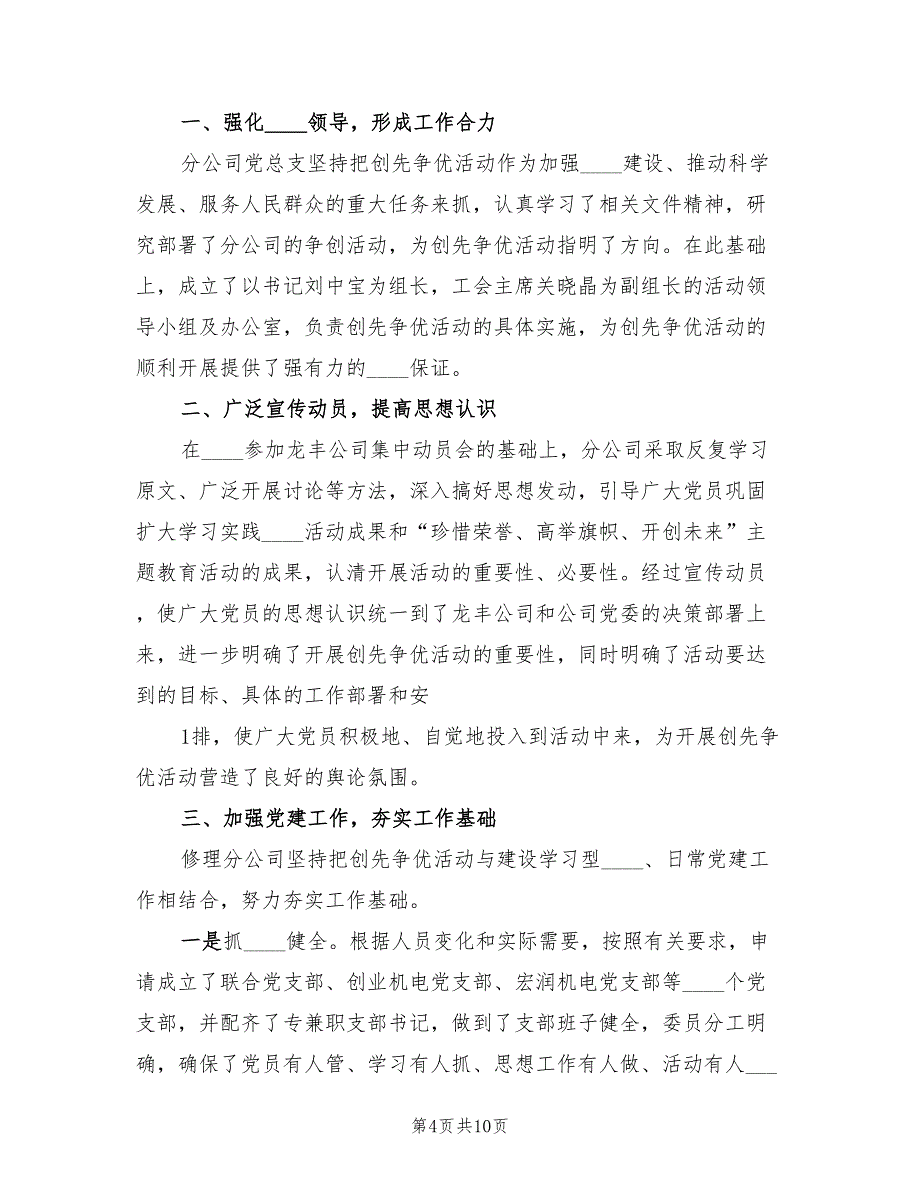 一、强化____领导，形成工作合力
分公司党总支坚持把创先争优活动作为加强____建设、推动科学
发展、服务人民群众的重大任务来抓，认真学习了相关文件精神，研
究部署了分公司的争创活动，为创先争优活动指明了方向。在此基础
上，成立了以书记刘中宝为组长，工会主席关晓晶为副组长的活动领
导小组及办公室，负责创先争优活动的具体实施，为创先争优活动的
顺利开展提供了强有力的____保证。
二、广泛宣传动员，提高思想认识
在____参加龙丰公司集中动员会的基础上，分公司采取反复学习
原文、广泛开展讨论等方法，深入搞好思想发动，引导广大党员巩固
扩大学习实践____活动成果和“珍惜荣誉、高举旗帜、开创未来”主
题教育活动的成果，认清开展活动的重要性、必要性。经过宣传动员
，使广大党员的思想认识统一到了龙丰公司和公司党委的决策部署上
来，进一步明确了开展创先争优活动的重要性，同时明确了活动要达
到的目标、具体的工作部署和安
1排，使广大党员积极地、自觉地投入到活动中来，为开展创先争
优活动营造了良好的舆论氛围。
三、加强党建工作，夯实工作基础
修理分公司坚持把创先争优活动与建设学习型____、日常党建工
作相结合，努力夯实工作基础。
一是抓____健全。根据人员变化和实际需要，按照有关要求，申
请成立了联合党支部、创业机电党支部、宏润机电党支部等____个党
支部，并配齐了专兼职支部书记，做到了支部班子健全，委员分工明
确，确保了党员有人管、学习有人抓、思想工作有人做、活动有人___
第4页共10页